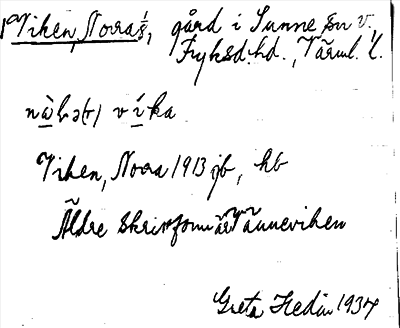 Viken, Norra, gård i Sunne sn v.,
Fryksd. hd., Värml. l.
vi̱ka
Viken, Norra 1913 jb, kb
Äldre skrivform är Tänneviken
Greta Hedin 1934